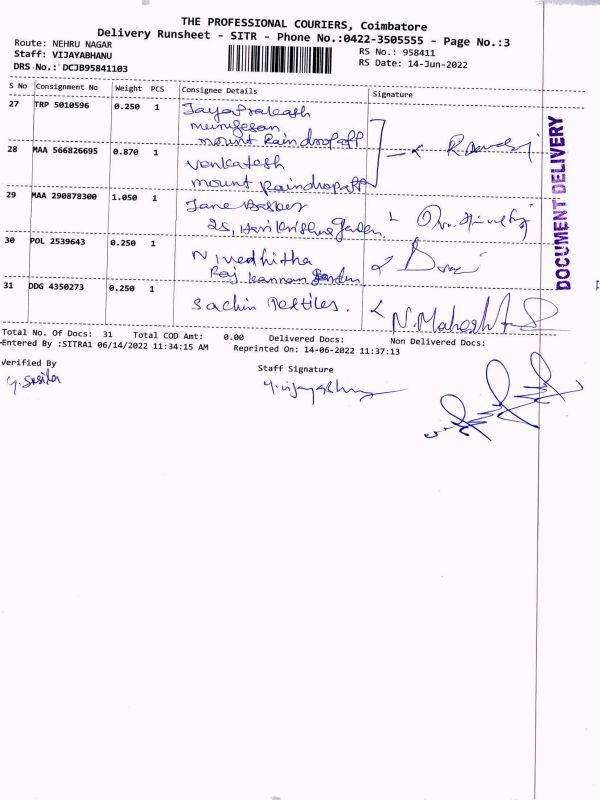 THE PROFESSIONAL COURIERS, Coimbatore
Delivery Runsheet - SITR - Phone No.:0422-3505555 - Page No.:3
Route: NEHRU NAGAR
Staff: VIJAYABHANU
DRS No.: DCJB95841103
RS No.: 958411
RS Date: 14-Jun-2022
S No Consignment No Weight PCS Consignee Details Signature
27 TRP 5010596 0.250 1 Jayaprakash
murugesan
mount Raindrop aff
28 MAA 566826695 0.870 1 Venkatesh
mount Raindrop aff
29 MAA 290878300 1.050 1 Jane
25, Hari Krishna Garden
30 POL 2539643 0.250 1 Nivedhitha
Raj Kannan Garden
31 DDG 4350273 0.250 1 Sachin Textiles. N. Mahesh
DOCUMENT DELIVERY
Total No. Of Docs: 31 Total COD Amt: 0.00 Delivered Docs: Non Delivered Docs:
Entered By :SITRA1 06/14/2022 11:34:15 AM Reprinted On: 14-06-2022 11:37:13
Verified By
Staff Signature
Y. Sasika